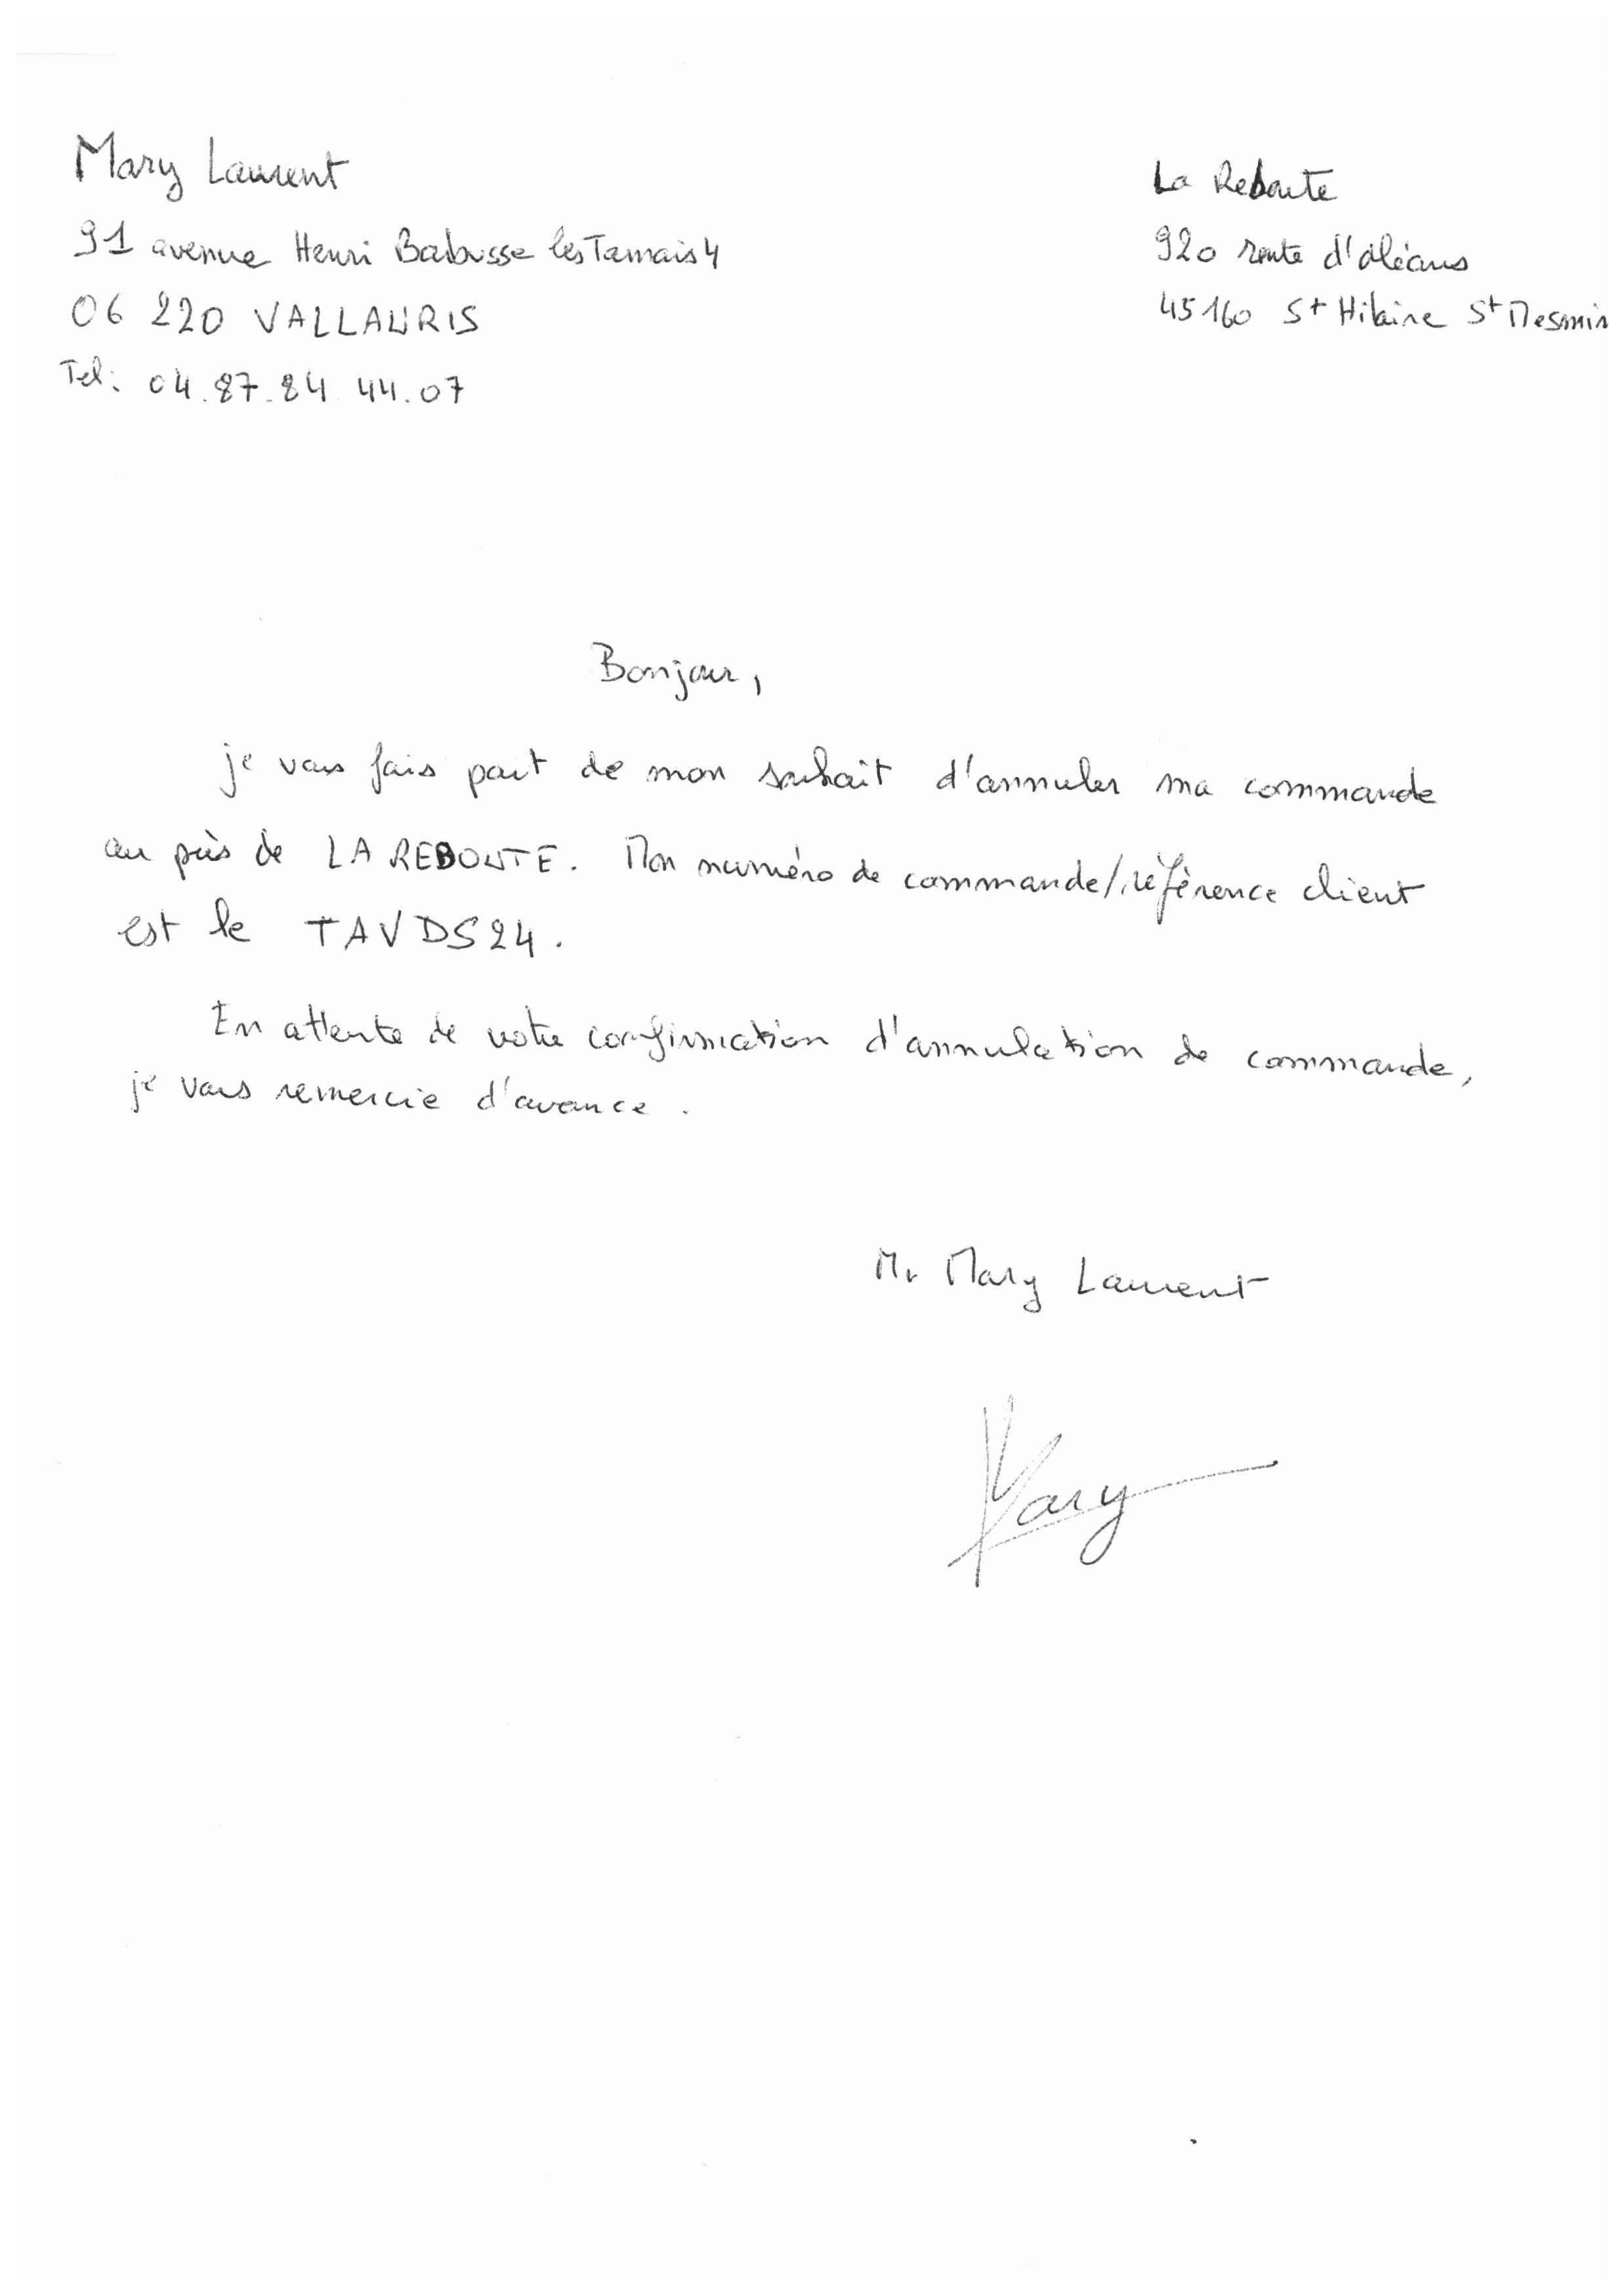 Mary Laurent
91 avenue Henri Babusse les Tamais 4
06 220 VALLAURIS
Tel: 04.87.84.44.07
La Reboute
920 route d'oléans
45160 St Hilaire St Mesmin
Bonjour,
je vous fais part de mon souhait d'annuler ma commande
au près de LA REBOUTE. Mon numéro de commande/référence client
est le TAVDS24.
En attente de votre confirmation d'annulation de commande,
je vous remercie d'avance.
Mr Mary Laurent
Mary